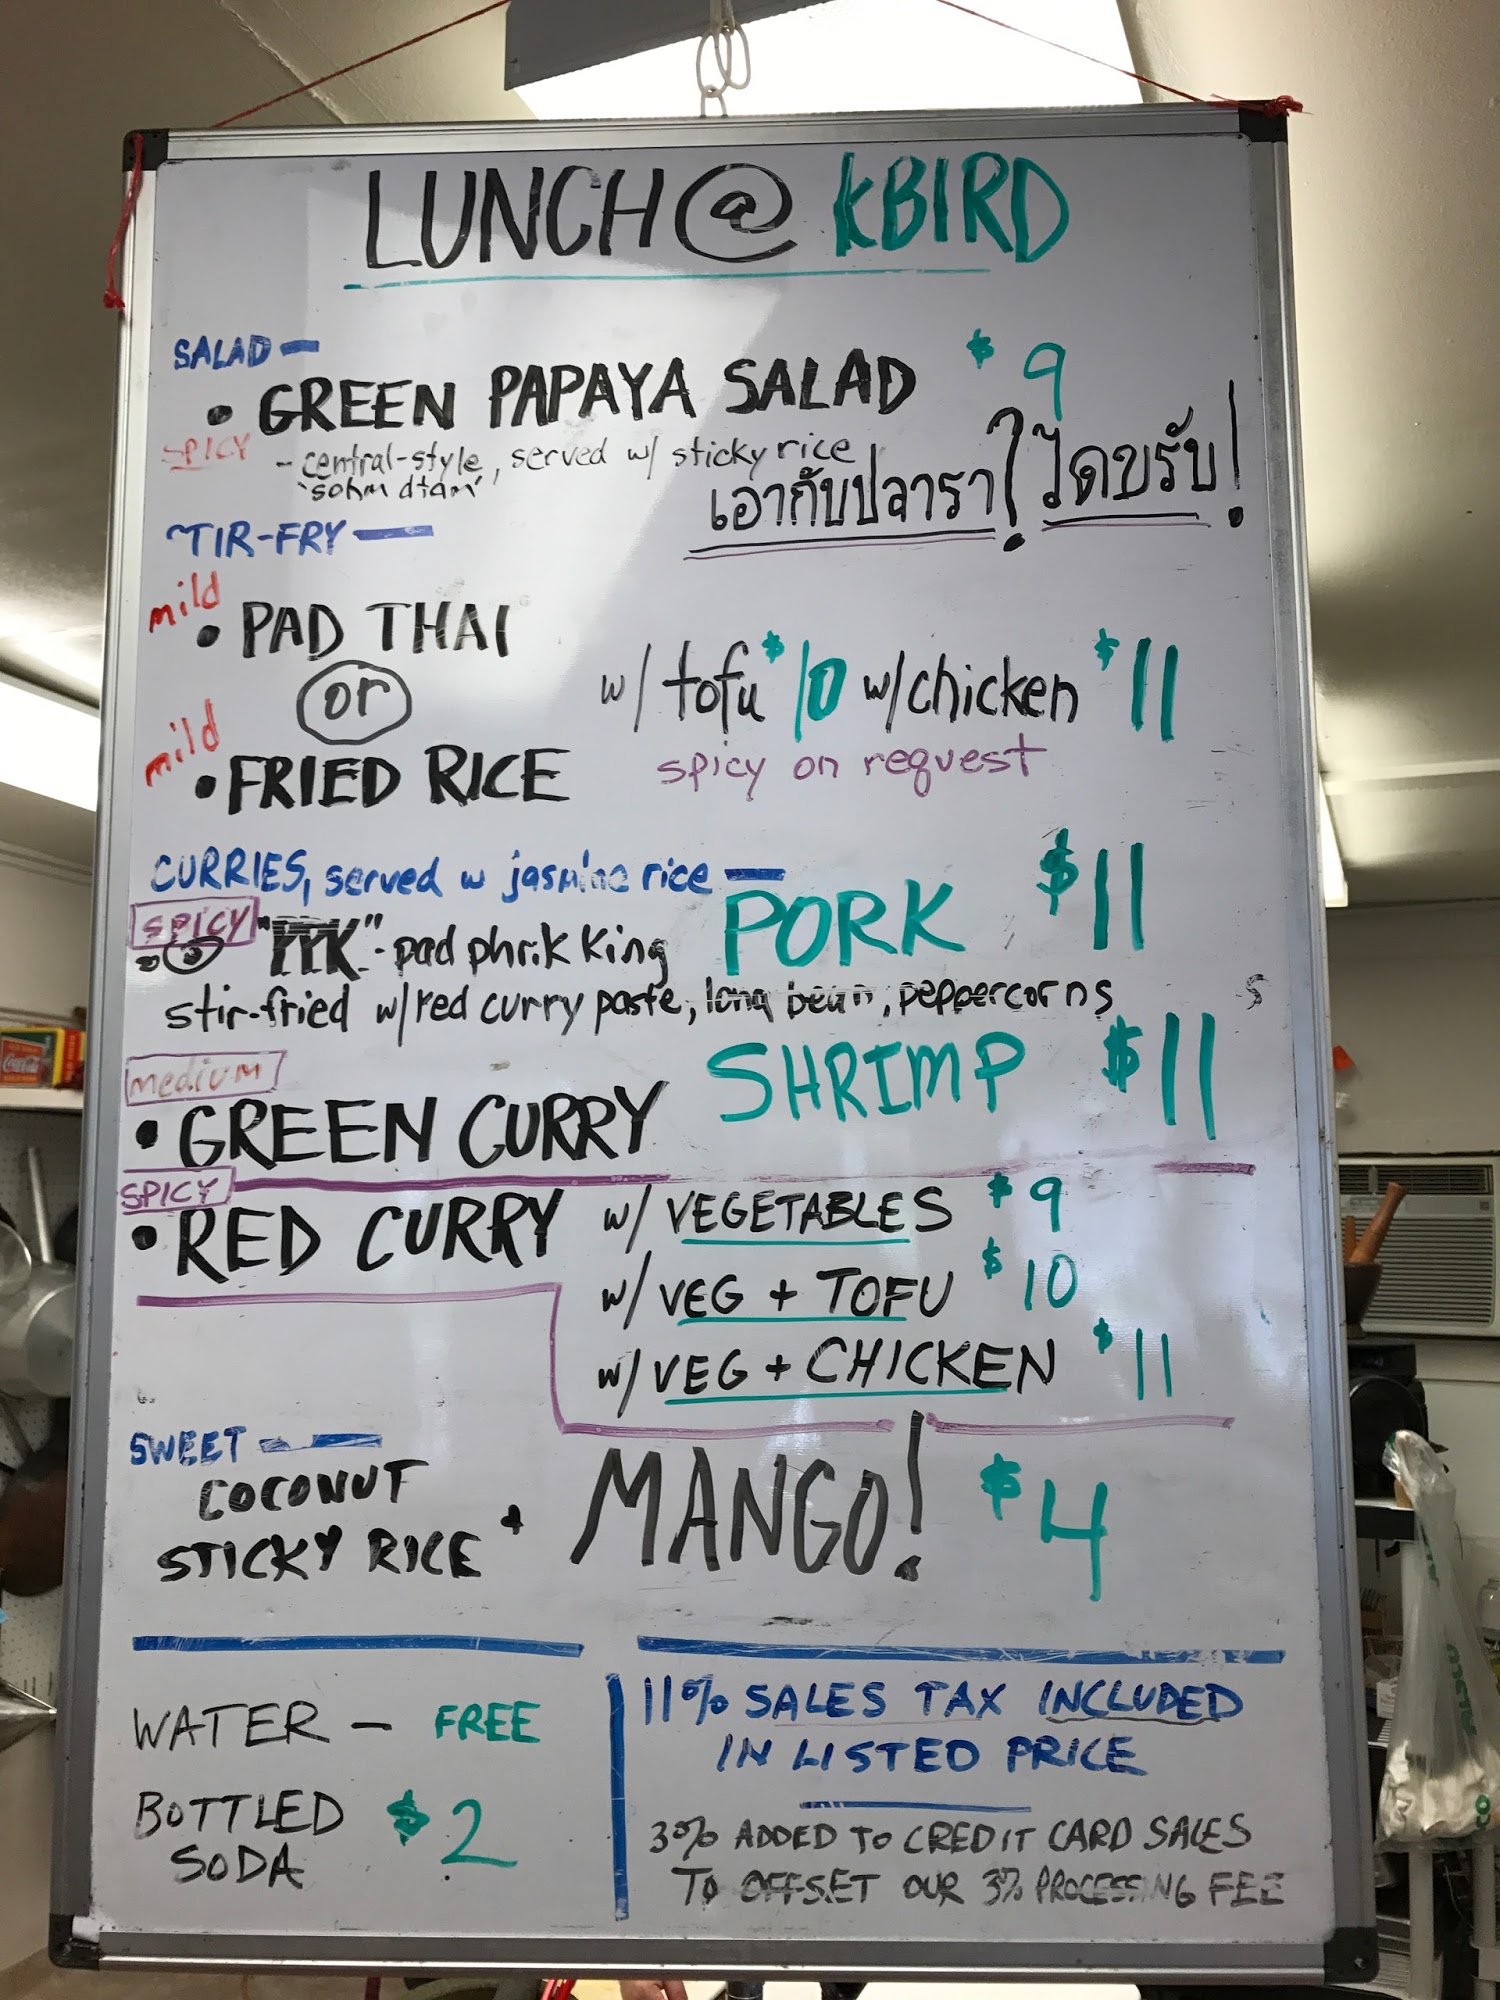 LUNCH @ KBIRD
SALAD —
• GREEN PAPAYA SALAD $9
SPICY
- central-style, served w/ sticky rice
'sohm dtam'
เอากับปลารา? ได้ขรับ!
TIR-FRY —
mild
• PAD THAI
or
w/ tofu $10 w/chicken $11
mild
• FRIED RICE
spicy on request
CURRIES, served w jasmine rice —
SPICY
• "PPK" - pad phrik king PORK $11
stir-fried w/red curry paste, long bean, peppercorns
medium
• GREEN CURRY SHRIMP $11
SPICY
• RED CURRY w/ VEGETABLES $9
w/ VEG + TOFU $10
w/ VEG + CHICKEN $11
SWEET —
COCONUT
STICKY RICE + MANGO! $4
WATER — FREE
BOTTLED
SODA $2
11% SALES TAX INCLUDED
IN LISTED PRICE
3% ADDED TO CREDIT CARD SALES
TO OFFSET OUR 3% PROCESSING FEE
Coca-Cola